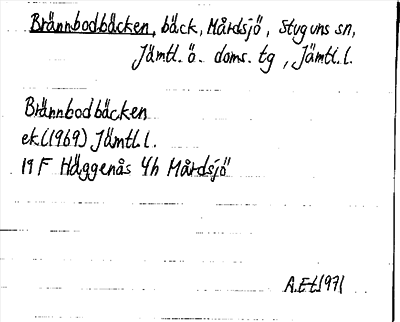 Brännbodbäcken, bäck, Mårdsjö, Stuguns sn,
Jämtl. ö. doms. tg, Jämtl. l.
Brännbodbäcken
ek. (1969) Jämtl. l.
19 F Häggenås 4h Mårdsjö
A.Et.1971